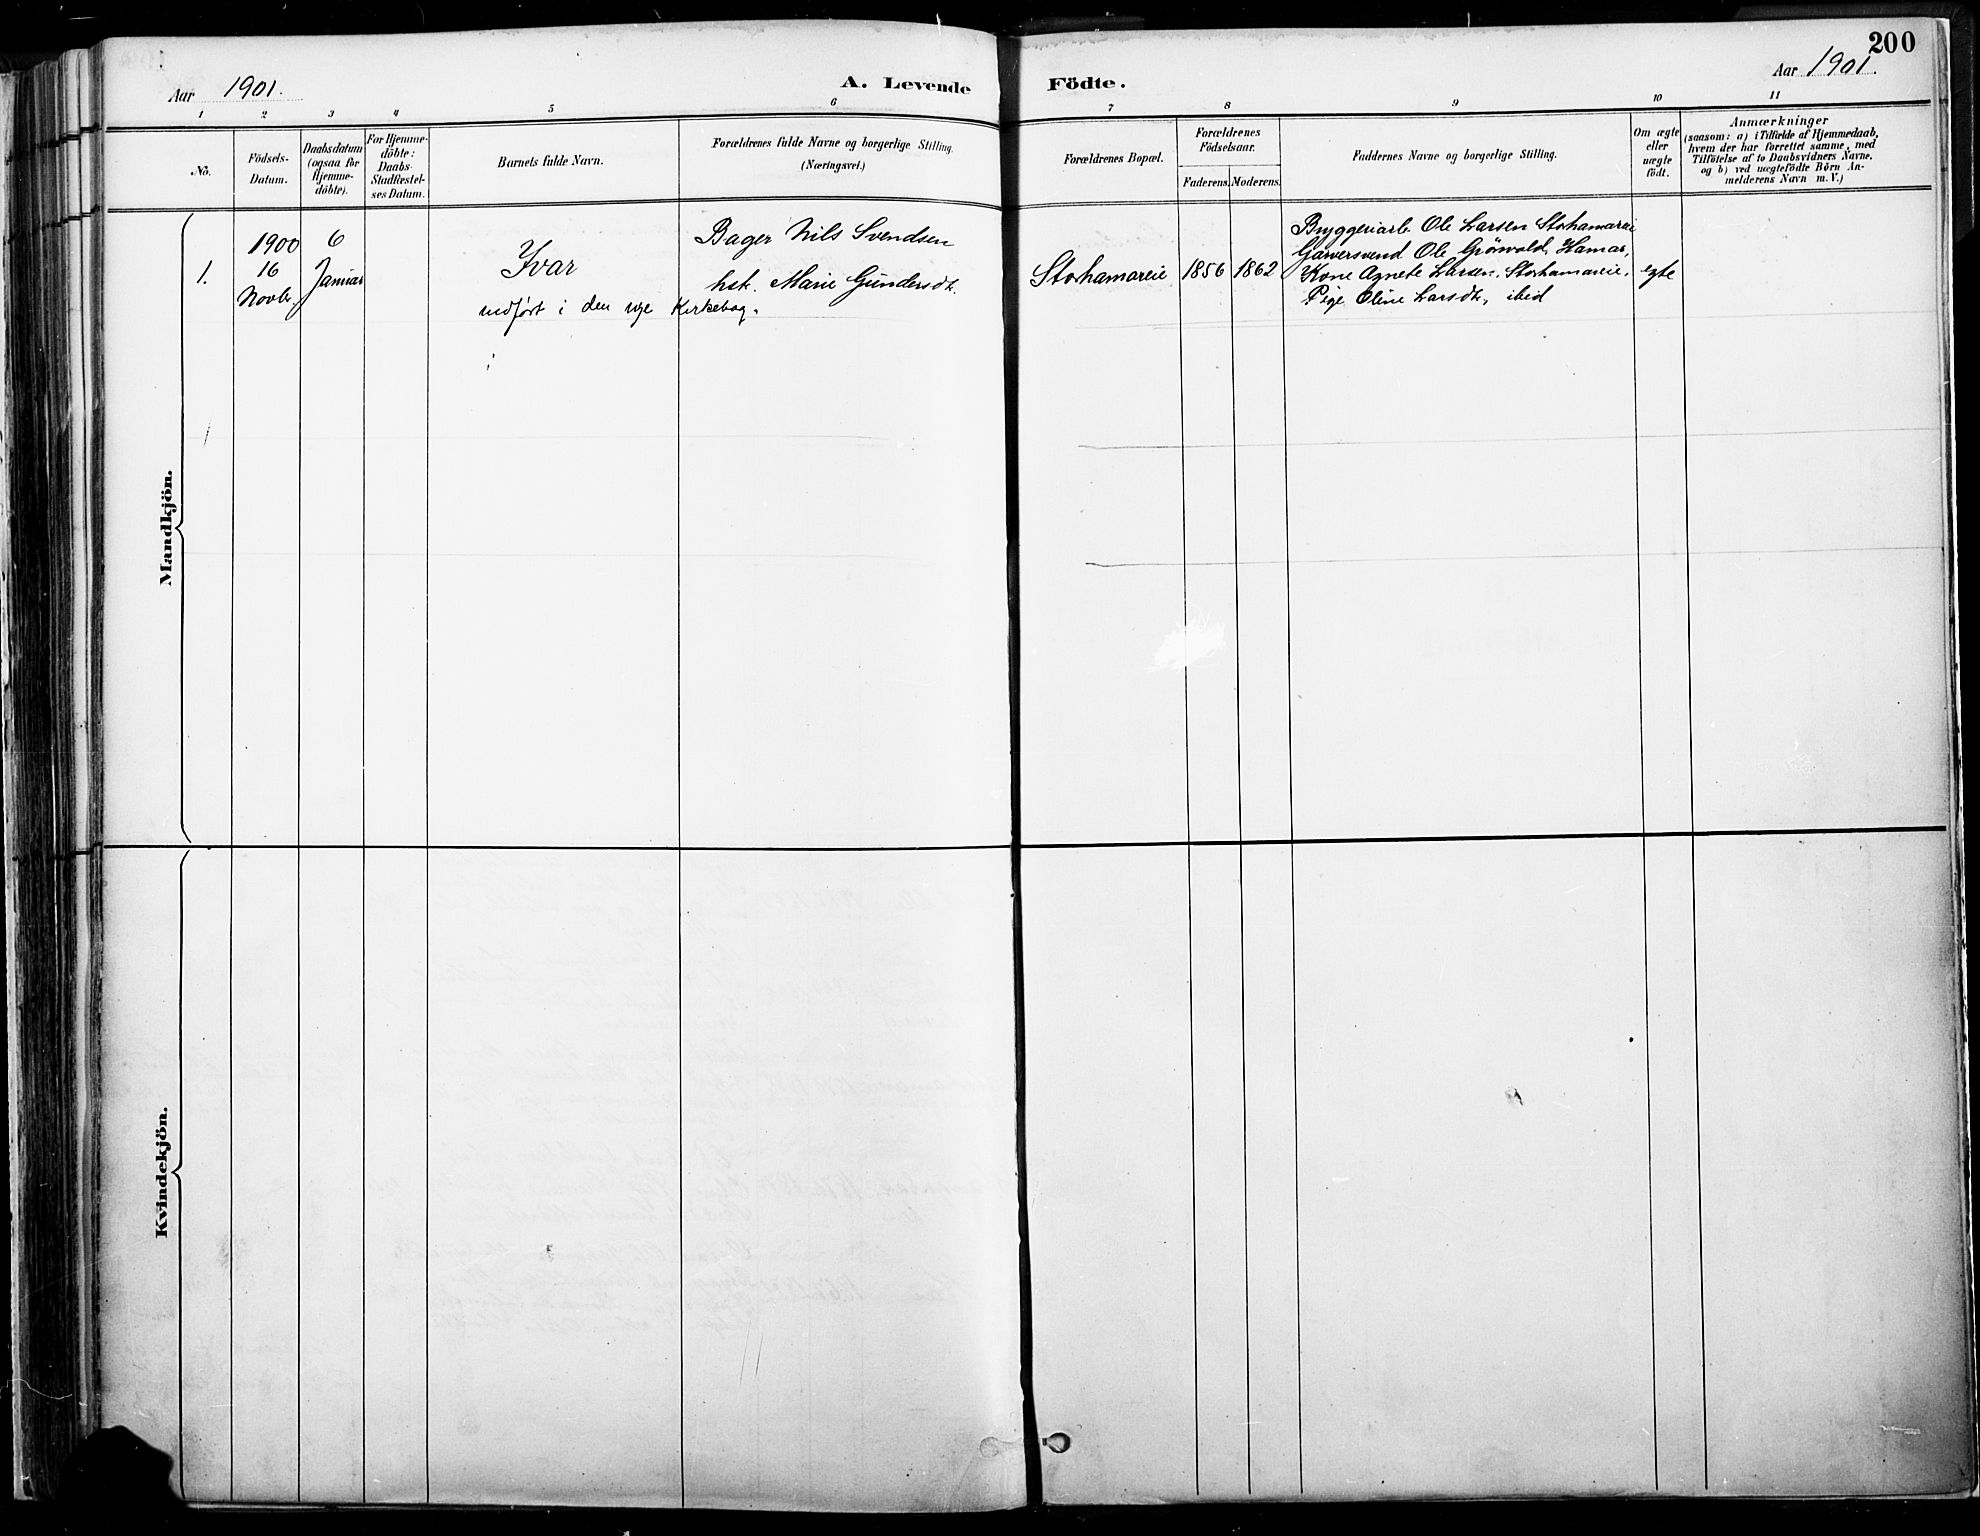 200
Aar 1901.
A. Levende Födte.
Aar 1901.
1 2 3 4 5 6 7 8 9 10 11
No.
Födsels-
Datum.
Daabsdatum
(ogsaa for
Hjemme-
döbte).
For Hjemme-
döbte:
Daabs-
Stadfæstel-
ses Datum.
Barnets fulde Navn.
Forældrenes fulde Navne og borgerlige Stilling.
(Næringsvei.)
Forældrenes Bopæl.
Forældrenes
Födselsaar.
Faderens. Moderens.
Faddernes Navne og borgerlige Stilling.
Om ægte
eller
uægte
födt.
Anmærkninger
(saasom: a) i Tilfælde af Hjemmedaab,
hvem der har forrettet samme, med
Tilföielse af to Daabsvidners Navne.
og b) ved uægtefödte Börn An-
melderens Navn m. V.)
Mandkjön.
1.
1900
16
Novbr.
6
Januar
Yvar
Bager Nils Svendsen
hst. Marie Gundersdt.
indført i den nye Kirkebog.
Storhamareie
1856
1862
Bryggeriarb Ole Larsen Storhamareie
Garversvend Ole Grönvold, Hamar,
Kone Agnete Larsen, Storhamareie,
Pige Oline Larsdt, ibid
egte
Kvindekjön.